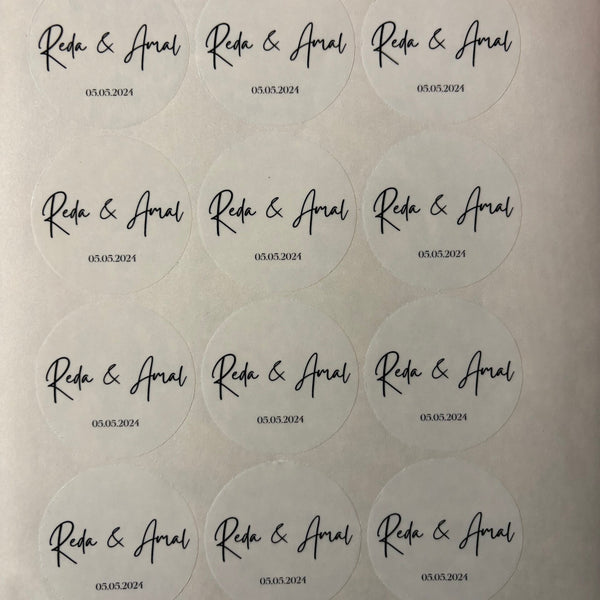 Reda & Amal Reda & Amal Reda & Amal
05.05.2024 05.05.2024 05.05.2024
Reda & Amal Reda & Amal Reda & Amal
05.05.2024 05.05.2024 05.05.2024
Reda & Amal Reda & Amal Reda & Amal
05.05.2024 05.05.2024 05.05.2024
Reda & Amal Reda & Amal Reda & Amal
05.05.2024 05.05.2024 05.05.2024